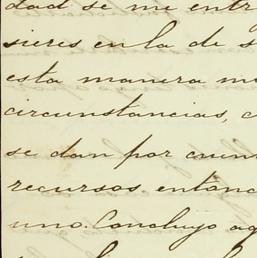 dad se me entr
sieres en la de s
esta manera m
circunstancias, c
se dan por cuen
recursos. entonc
uno. Concluyo ag